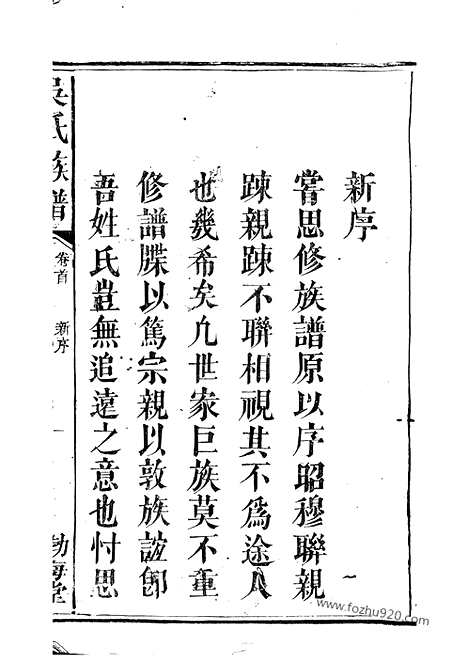 新序
嘗思修族譜原以序昭穆聯親
踈親踈不聯相視其不為途人
也幾希矣凢世家巨族莫不重
修譜牒以篤宗親以敦族誼卽
吾姓氏豈無追遠之意也忖思
吳氏族譜
卷首
新序
一
勃海堂
www.fozhu920.com